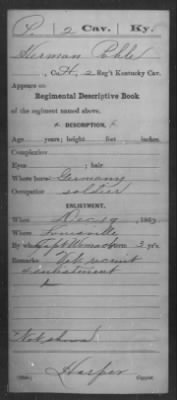 P. 2 Cav. Ky.
Herman Pohle
, Co. H, 2 Reg't Kentucky Cav.
Appears on
Regimental Descriptive Book
of the regiment named above.
DESCRIPTION.
Age years; height feet inches.
Complexion
Eyes ; hair
Where born Germany
Occupation soldier
ENLISTMENT.
When Dec 19, 1863.
Where Louisville
By whom Capt Womack term 3 y'rs.
Remarks Vet recruit
Not shown
Harper
Copyist.